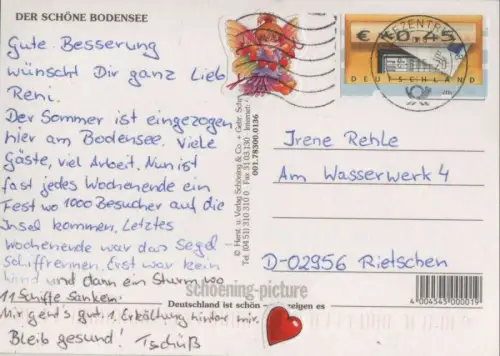 DER SCHÖNE BODENSEE
Gute Besserung
wünscht Dir ganz Lieb
Reni.
Der Sommer ist eingezogen
hier am Bodensee. Viele
Gäste, viel Arbeit. Nun ist
fast jedes Wochenende ein
Fest wo 1000 Besucher auf die
Insel kommen. Letztes
Wochenende war das Segel
schiffrennen. Erst war kein
Wind und dann ein Sturm wo
11 Schiffe sanken.
Mir geht's gut. 1. Erkältung hinter mir.
Bleib gesund! Tschüß
© Herst. u. Verlag Schöning & Co. + Gebr. Schm
Tel. (04 51) 310 310 0 · Fax 31 03 130 · Internet:
001.78300.0136
€ 0,45
DEUTSCHLAND
Irene Rehle
Am Wasserwerk 4
D-02956 Rietschen
schoening-picture
Deutschland ist schön zeigen es
4 004545 000019